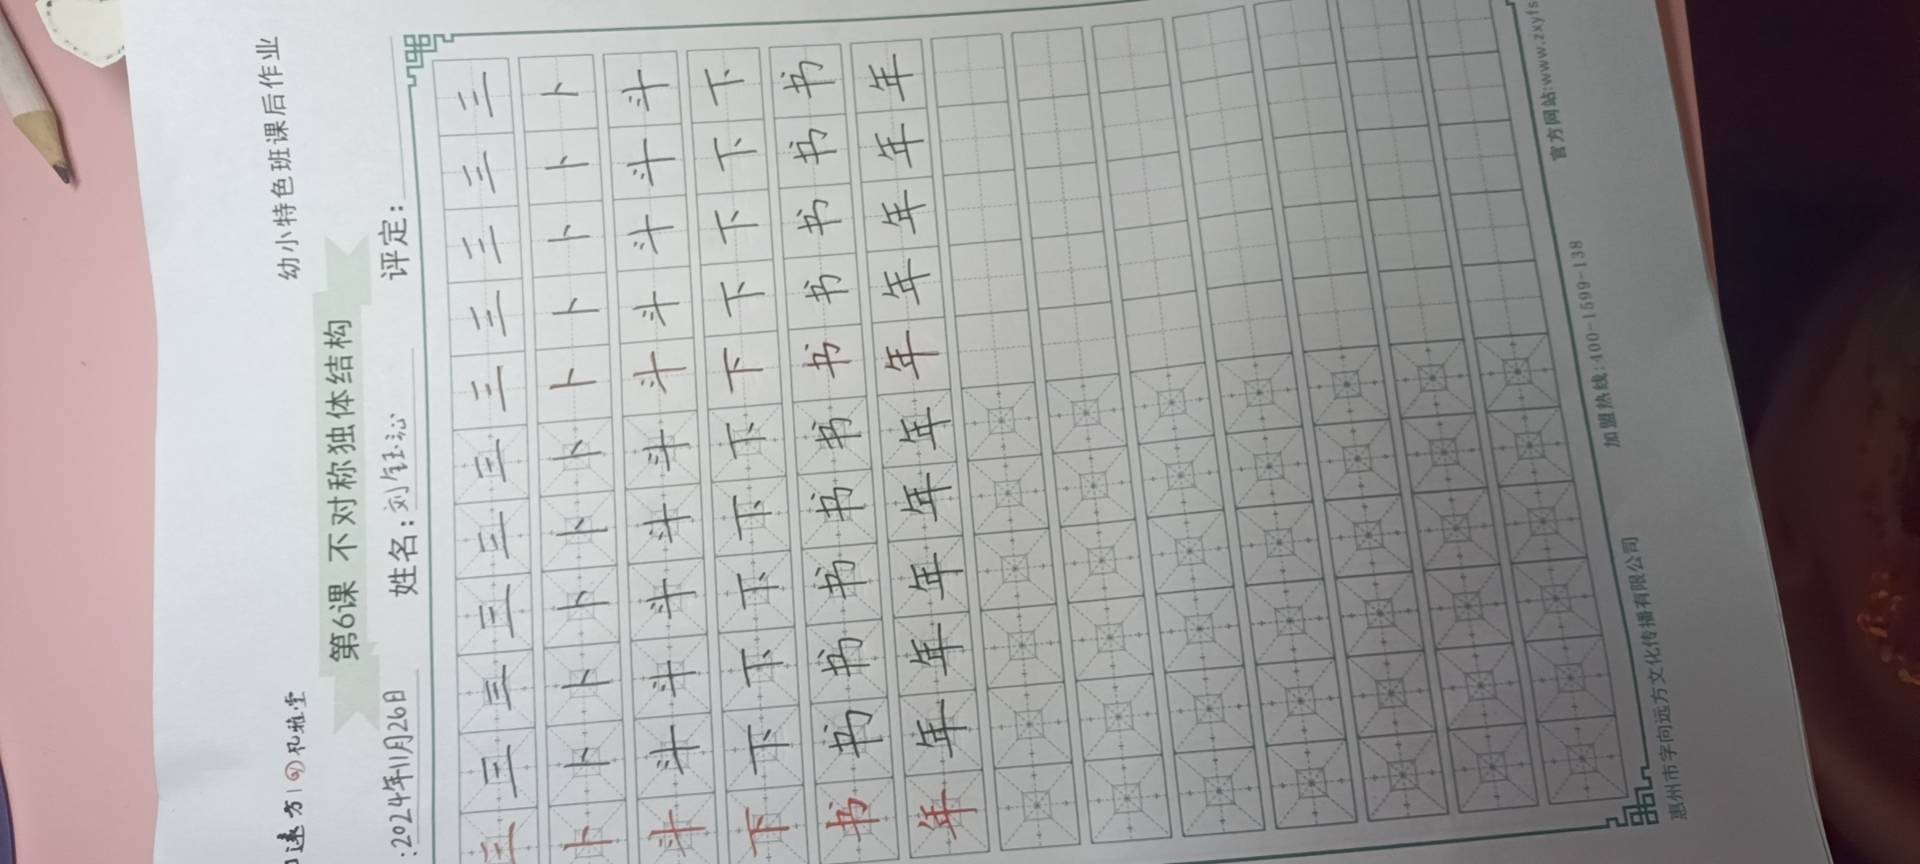 远方 幼小特色班课后作业
第6课 不对称独体结构
:2024年11月26日 姓名:刘钰沁 评定:
三三三三三三三三三三三
卜卜卜卜卜卜卜卜卜卜卜
斗斗斗斗斗斗斗斗斗斗斗
下下下下下下下下下下下
书书书书书书书书书书书
年年年年年年年年年年年
惠州市字向远方文化传播有限公司 加盟热线:400-1599-138 官方网站:www.zxyfs